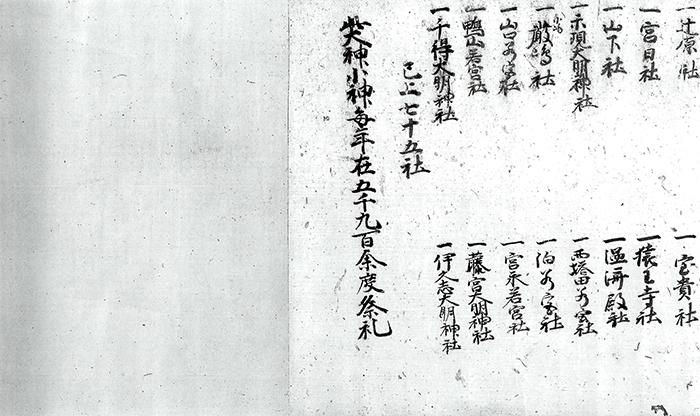 一辻原社
一宝貴社
一宮日社
一猿王寺社
一山下社
一温済殿社
一宗項大明神社
一西塔田若宮社
一厳嶋社
一泊若宮社
一山口若宮社
一宮永若宮社
一鴨山若宮社
一藤宮大明神社
一千得大明神社
一伊久志大明神社
已上七十五社
大神小神毎年在五千九百余度祭礼